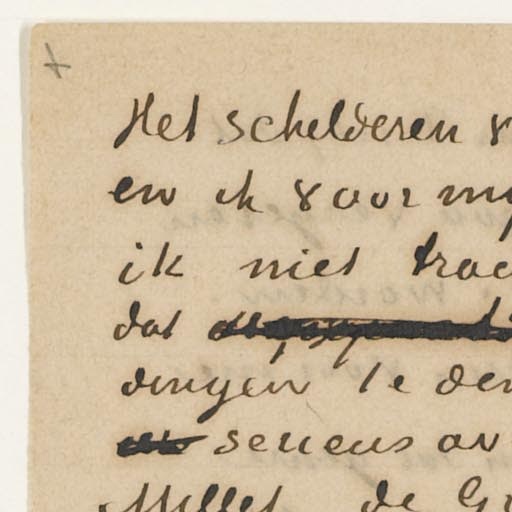 Het schelderen v
en ik voor my
ik niet trac
dat
dingen te den
serieus ov
Millet de Gr